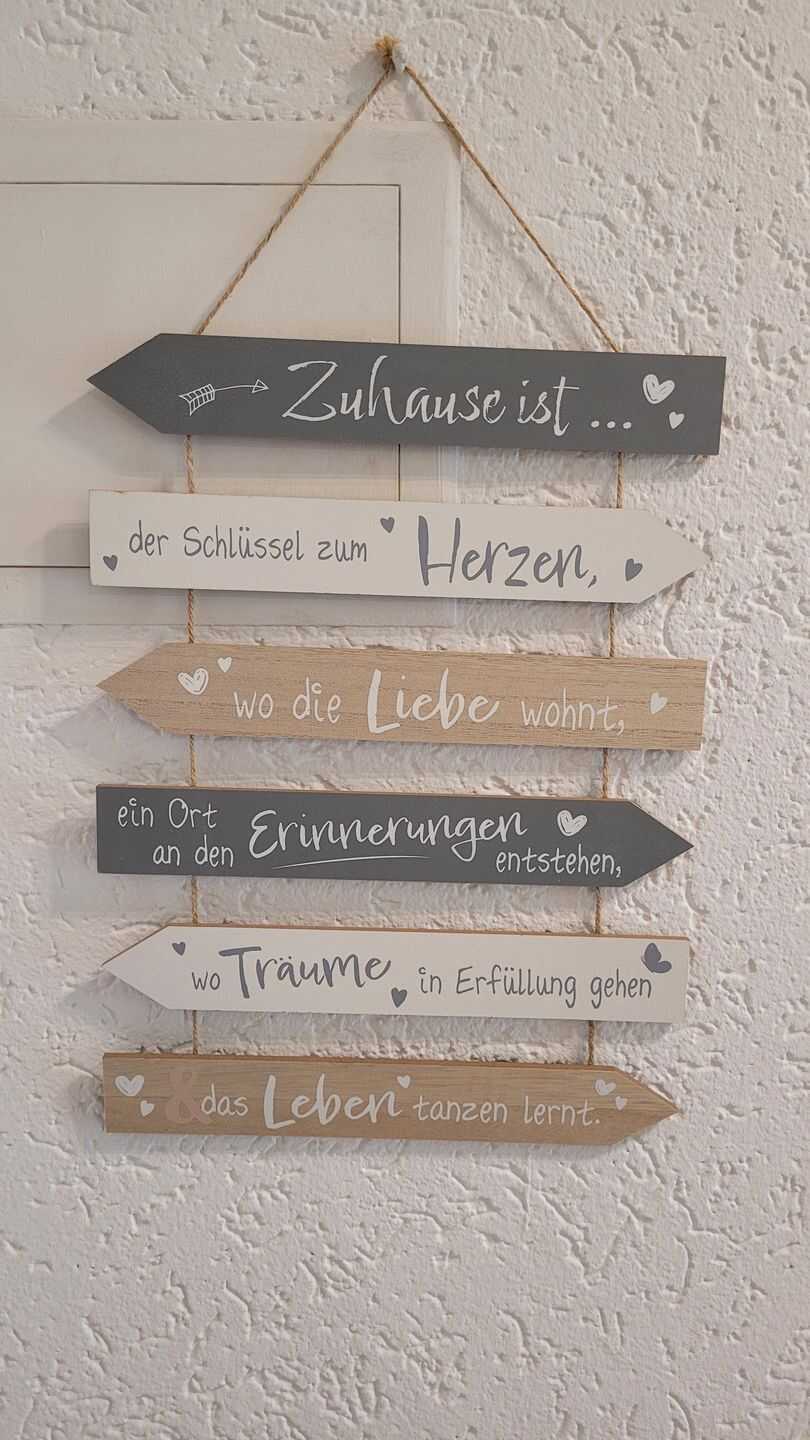 Zuhause ist ...
der Schlüssel zum Herzen,
wo die Liebe wohnt,
ein Ort
an den Erinnerungen entstehen,
wo Träume in Erfüllung gehen
& das Leben tanzen lernt.